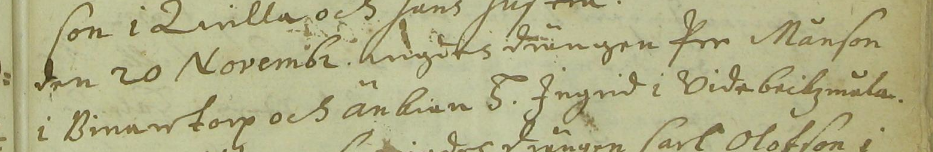 son i Qwilla och hans hustru.
den 20 Novembr. wigdes drängen Per Månson
i Binartorp och änkian H. Ingrid i Videbeckzmåla.
drängen Carl Olofson i